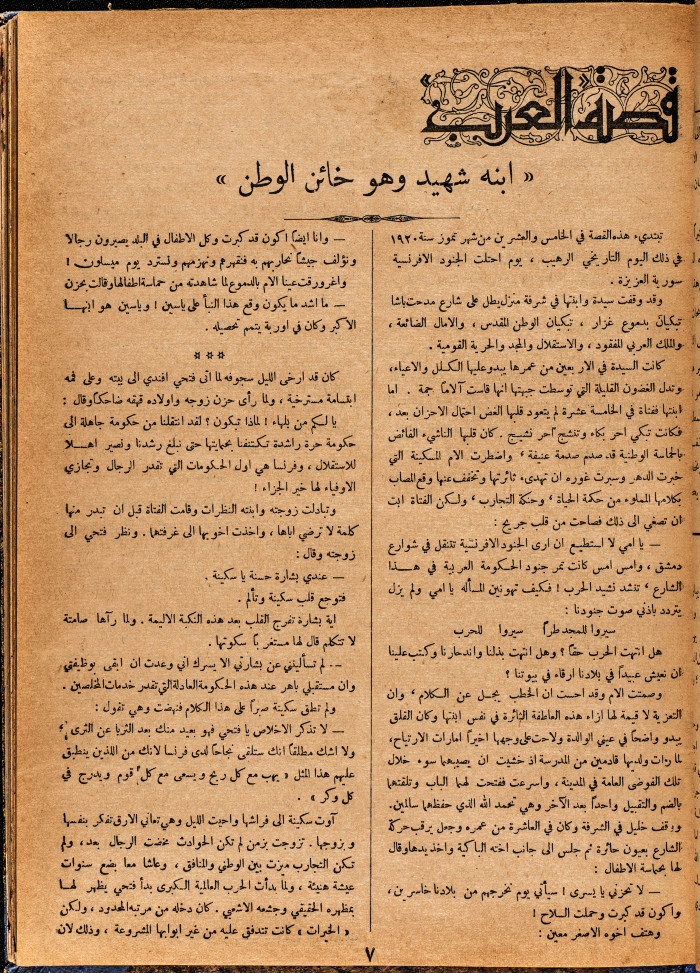 قصة العرب
« ابنه شهيد وهو خائن الوطن »
تبتدىء هذه القصة في الخامس والعشرين من شهر تموز سنة ١٩٢٠
في ذلك اليوم التاريخي الرهيب ، يوم احتلت الجنود الافرنسية
سورية العزيزة .
وقد وقفت سيدة وابنتها في شرفة منزل يطل على شارع مدحت باشا
تبكيان بدموع غزار ، تبكيان الوطن المقدس ، والامال الضائعة ،
والملك العربي المفقود ، والاستقلال والمجد والحرية القومية .
كانت السيدة في الاربعين من عمرها يبدو عليها الكلل والاعياء،
وتدل الغضون القليلة التي توسطت جبهتها انها قاست آلاماً جمة . اما
ابنتها ففتاة في الخامسة عشرة لم يتعود قلبها الغض احتمال الاحزان بعد ،
فكانت تبكي احر بكاء وتنشج احر نشيج . كان قلبها الناشىء الفائض
بالحماسة الوطنية قد صدم صدمة عنيفة ، واضطرت الام المسكينة التي
خبرت الدهر وسبرت غوره ان تهدىء ثائرتها وتخفف عنها وقع المصاب
بكلامها المملوء من حكمة الحياة ، وحنكة التجارب ، ولكن الفتاة ابت
ان تصغي الى ذلك فصاحت من قلب جريح :
— يا امي لا استطيع ان ارى الجنود الافرنسية تتنقل في شوارع
دمشق ، وامس امس كانت تمر جنود الحكومة العربية في هذا
الشارع ، تنشد نشيد الحرب ! فكيف تهونين المسألة يا امي ولم يزل
يتردد باذني صوت جنودنا :
سيروا للمجد طراً سيروا للحرب
هل انتهت الحرب حقاً ؟ وهل انتهت بذلنا واندحارنا وكتب علينا
ان نعيش عبيداً في بلادنا ارقاء في بيوتنا ؟
وصمتت الام وقد احست ان الخطب يجل عن الكلام ، وان
التعزية لا قيمة لها ازاء هذه العاطفة الثائرة في نفس ابنتها وكان القلق
يبدو واضحاً في عيني الوالدة ولاحت على وجهها اخيراً امارات الارتياح،
لما رأت ولديها قادمين من المدرسة اذ خشيت ان يصيبهما سوء خلال
تلك الفوضى العامة في المدينة ، واسرعت ففتحت لهما الباب وتلقتهما
بالضم والتقبيل واحداً بعد الآخر وهي تحمد الله الذي حفظهما سالمين.
ووقف خليل في الشرفة وكان في العاشرة من عمره وجعل يرقب حركة
الشارع بعيون حائرة ثم جلس الى جانب اخته الباكية واخذ يدها وقال
لها بحماسة الاطفال :
— لا تحزني يا يسرى ! سيأتي يوم نخرجهم من بلادنا خاسرين ،
واكون قد كبرت وحملت السلاح !
وهتف اخوه الاصغر معين :
— وانا ايضاً اكون قد كبرت وكل الاطفال في البلد يصيرون رجالا
ونؤلف جيشاً نحاربهم به فنقهرهم ونهزمهم ونسترد يوم ميسلون !
واغرورقت عينا الام بالدموع لما شاهدته من حماسة اطفالها وقالت بحزن
— ما اشد ما يكون وقع هذا النبأ على ياسين ! وياسين هو ابنها
الاكبر وكان في اوربة يتمم تحصيله .
***
كان قد ارخى الليل سجوفه لما اتى فتحي افندي الى بيته وعلى فمه
ابتسامة مسترخية ، ولما رأى حزن زوجه واولاده قهقه ضاحكاً وقال :
يا لكم من بلهاء ! لماذا تبكون ؟ لقد انتقلنا من حكومة جاهلة الى
حكومة حرة راشدة تكتنفنا بحمايتها حتى نبلغ رشدنا ونصير اهلا
للاستقلال ، وفرنسا هي اول الحكومات التي تقدر الرجال وتجازي
الاوفياء لها خير الجزاء !
وتبادلت زوجته وابنته النظرات وقامت الفتاة قبل ان تبدر منها
كلمة لا ترضي اباها ، واخذت اخويها الى غرفتهما . ونظر فتحي الى
زوجته وقال :
— عندي بشارة حسنة يا سكينة .
فتوجع قلب سكينة وتألم .
اية بشارة تفرج القلب بعد هذه النكبة الاليمة . ولما رآها صامتة
لا تتكلم قال لها مستغرباً سكوتها .
— لم تسألينني عن بشارتي الا يسرك اني وعدت ان ابقى بوظيفتي
وان مستقبلي باهر عند هذه الحكومة العادلة التي تقدر خدمات المخلصين .
ولم تطق سكينة صبراً على هذا الكلام فنهضت وهي تقول :
— لا تذكر الاخلاص يا فتحي فهو بعيد منك بعد الثريا عن الثرى ،
ولا اشك مطلقاً انك ستلقى نجاحاً لدى فرنسا لانك من اللذين ينطبق
عليهم هذا المثل « يهب مع كل ريح ويسعى مع كل قوم ويدرج في
كل وكر » .
آوت سكينة الى فراشها واحيت الليل وهي تعاني الارق تفكر بنفسها
وبزوجها . تزوجت بزمن لم تكن الحوادث مخضت الرجال بعد ، ولم
تكن التجارب ميزت بين الوطني والمنافق ، وعاشا معا بضع سنوات
عيشة هنيئة ، ولما بدأت الحرب العالمية الكبرى بدأ فتحي يظهر لها
بمظهره الحقيقي وجشعه الاشعبي . كان دخله من مرتبه المحدود ، ولكن
« الخيرات » كانت تتدفق عليه من غير ابوابها المشروعة ، وذلك لان
٧